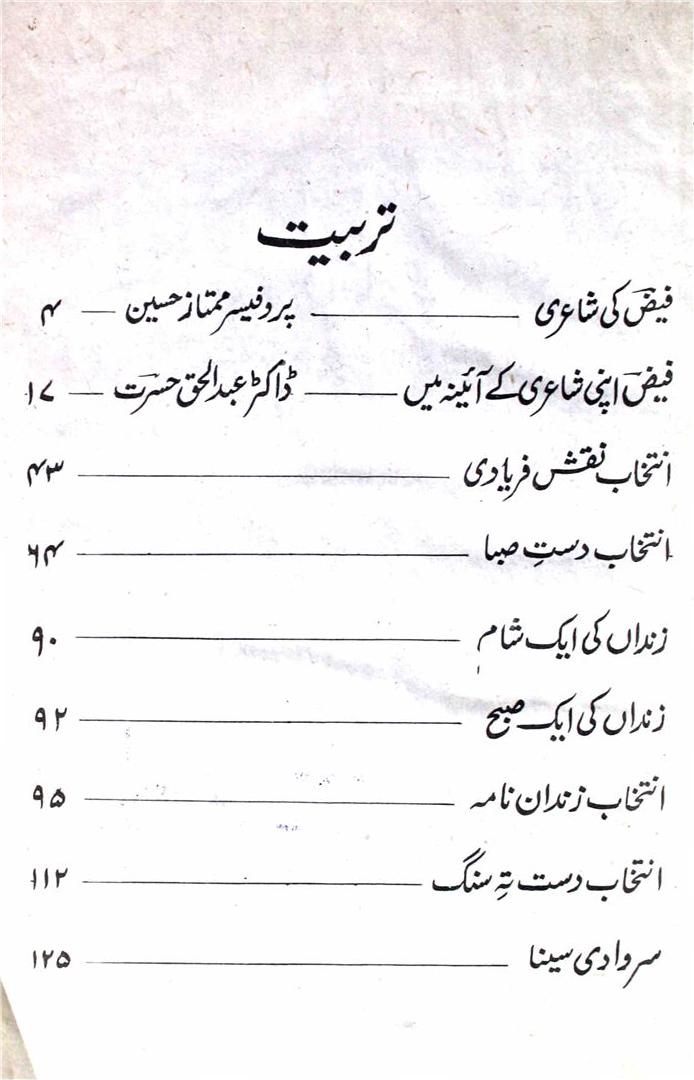 تربیت
فیضؔ کی شاعری ــــــ پروفیسر ممتاز حسین ــــــ ۴
فیضؔ اپنی شاعری کے آئینہ میں ــــــ ڈاکٹر عبدالحق حسرتؔ ــــــ ۱۷
انتخاب نقش فریادی ــــــ ۴۳
انتخاب دستِ صبا ــــــ ۶۴
زنداں کی ایک شام ــــــ ۹۰
زنداں کی ایک صبح ــــــ ۹۲
انتخاب زندان نامہ ــــــ ۹۵
انتخاب دست تہِ سنگ ــــــ ۱۱۲
سر وادی سینا ــــــ ۱۲۵